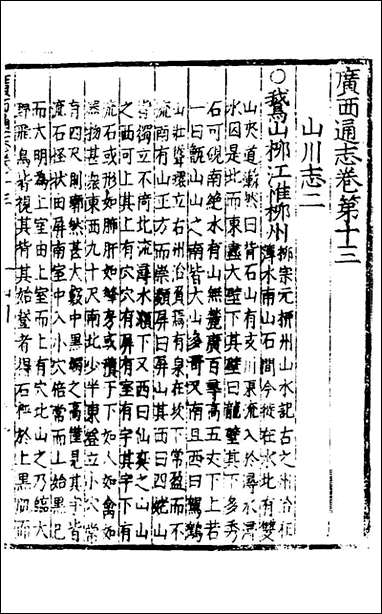 廣西通志卷第十三
山川志二
○鵝山柳江惟柳州
柳宗元柳州山水記古之州治在
潯水南山石間今徙在水北有雙
山夾道嶄然曰背石山有支川東流入於潯水潯
水因是北而東盡大壁下其壁曰龍壁其下多秀
石可硯南絕水有山無麓廣百尋高五丈下上若
一曰甑山山之南皆大山多奇又南且西曰駕鶴
山壯聳環立古州治負焉有泉在坎下常盈而不
流南有山正方而崇類屏曰屏山其西曰四姥山
皆獨立不倚北流潯水瀨下又西曰仙奕之山山
之西可上其上有穴穴有屏有室有宇其宇下有
流石或形如肺肝如茄房或積于下如人如禽如
器物甚衆東西九十尺南北少半東登入小穴常
有四尺則廓然甚大竅中黑燭之高僅見其宇皆
流石怪狀由屏南室中入小穴倍常而上始黑已
而大明為上室由上室而上有穴北出之乃臨大
野飛鳥皆視其背其始登者得石枰於上黑肌而